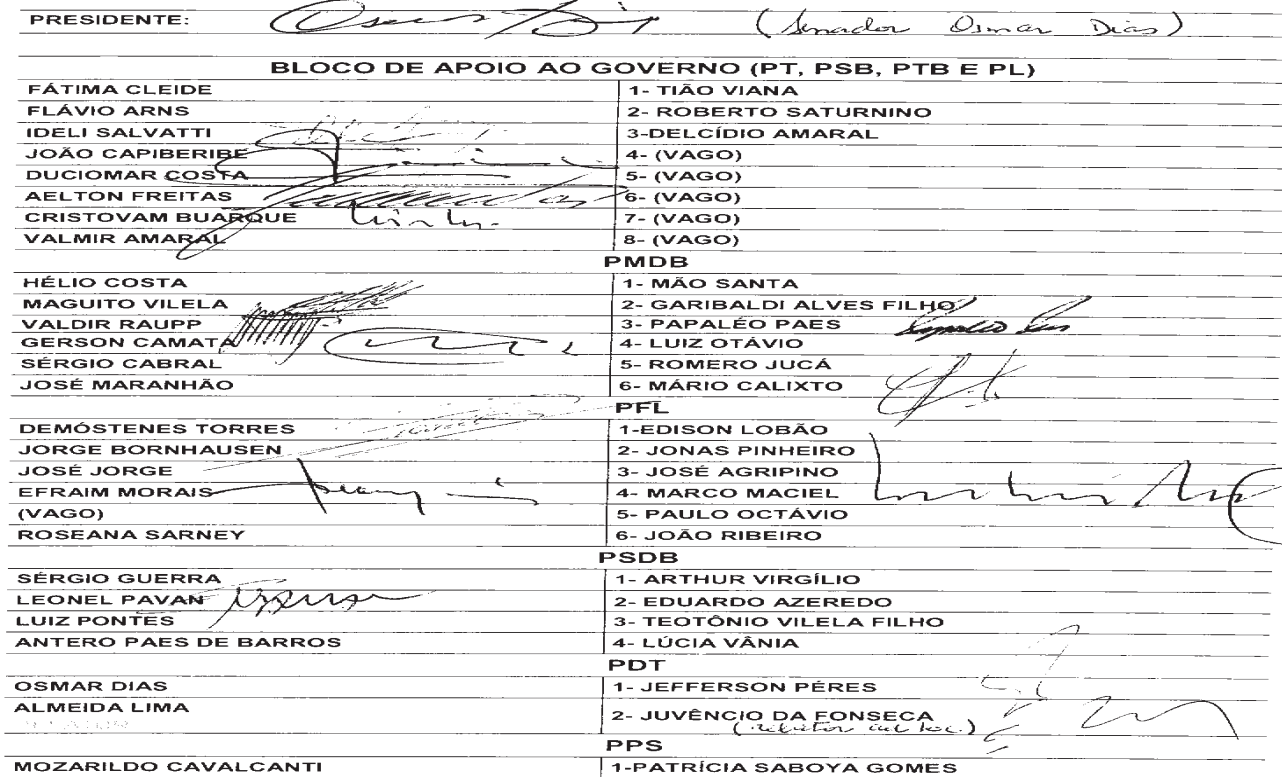 PRESIDENTE: (Senador Osmar Dias)
BLOCO DE APOIO AO GOVERNO (PT, PSB, PTB E PL)
FÁTIMA CLEIDE 1- TIÃO VIANA
FLÁVIO ARNS 2- ROBERTO SATURNINO
IDELI SALVATTI 3-DELCÍDIO AMARAL
JOÃO CAPIBERIBE 4- (VAGO)
DUCIOMAR COSTA 5- (VAGO)
AELTON FREITAS 6- (VAGO)
CRISTOVAM BUARQUE 7- (VAGO)
VALMIR AMARAL 8- (VAGO)
PMDB
HÉLIO COSTA 1- MÃO SANTA
MAGUITO VILELA 2- GARIBALDI ALVES FILHO
VALDIR RAUPP 3- PAPALÉO PAES
GERSON CAMATA 4- LUIZ OTÁVIO
SÉRGIO CABRAL 5- ROMERO JUCÁ
JOSÉ MARANHÃO 6- MÁRIO CALIXTO
PFL
DEMÓSTENES TORRES 1-EDISON LOBÃO
JORGE BORNHAUSEN 2- JONAS PINHEIRO
JOSÉ JORGE 3- JOSÉ AGRIPINO
EFRAIM MORAIS 4- MARCO MACIEL
(VAGO) 5- PAULO OCTÁVIO
ROSEANA SARNEY 6- JOÃO RIBEIRO
PSDB
SÉRGIO GUERRA 1- ARTHUR VIRGÍLIO
LEONEL PAVAN 2- EDUARDO AZEREDO
LUIZ PONTES 3- TEOTÔNIO VILELA FILHO
ANTERO PAES DE BARROS 4- LÚCIA VÂNIA
PDT
OSMAR DIAS 1- JEFFERSON PÉRES
ALMEIDA LIMA 2- JUVÊNCIO DA FONSECA
PPS
MOZARILDO CAVALCANTI 1-PATRÍCIA SABOYA GOMES